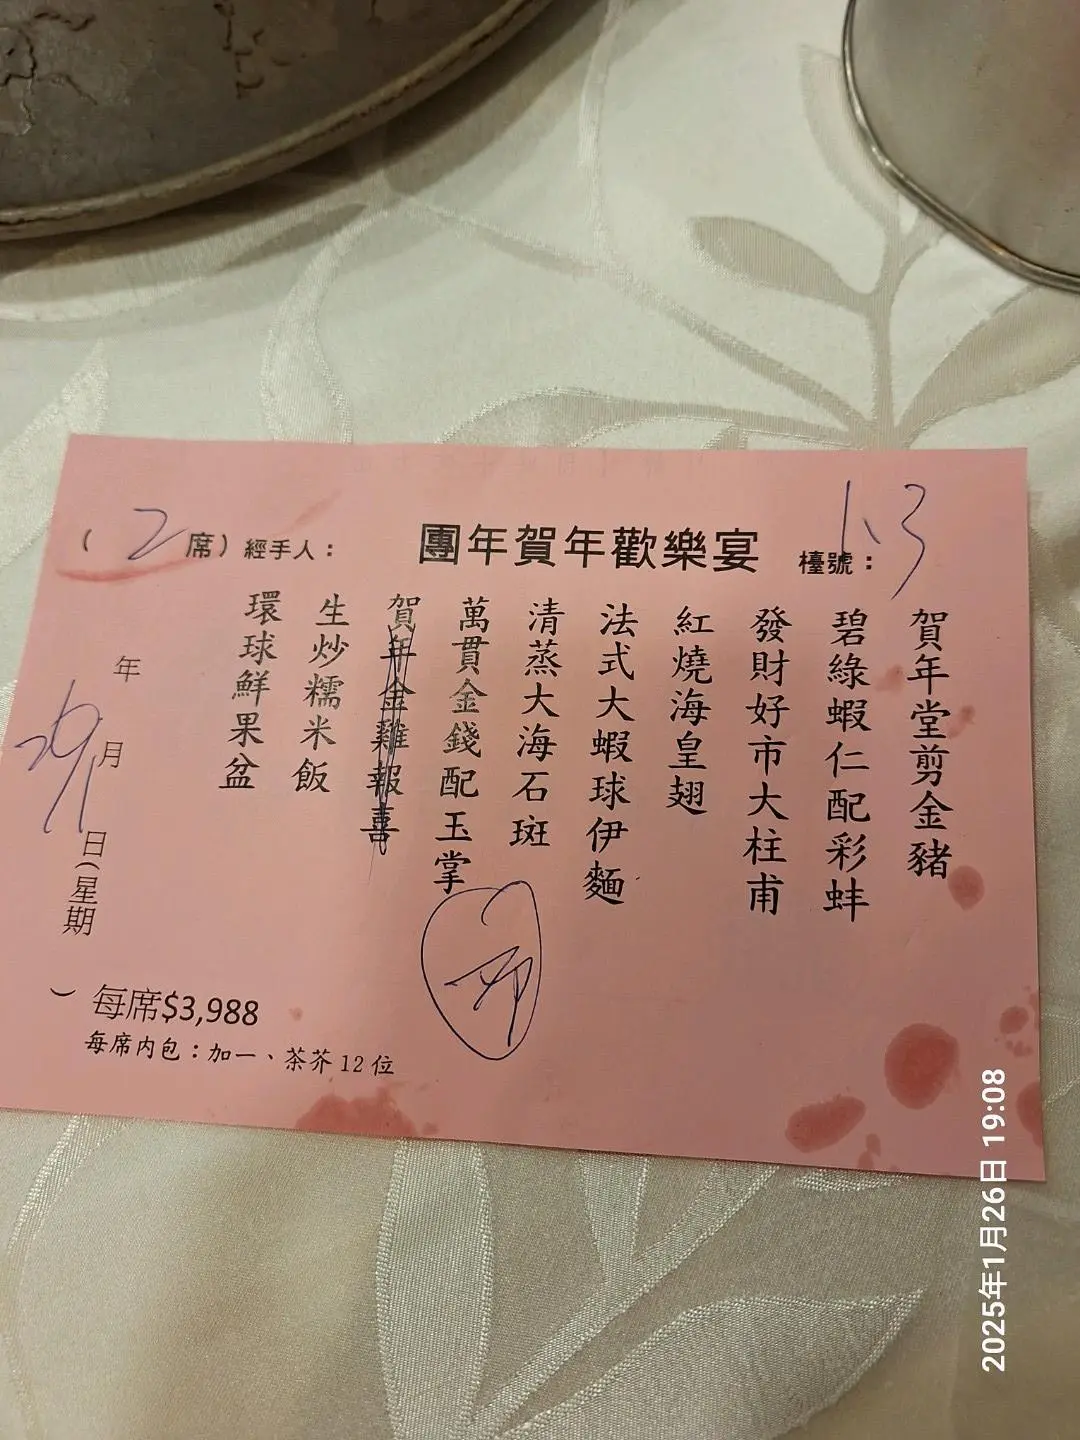 團年賀年歡樂宴
檯號：1、3
（2席）經手人：
賀年堂剪金豬
碧綠蝦仁配彩蚌
發財好市大柱甫
紅燒海皇翅
法式大蝦球伊麵
清蒸大海石斑
萬貫金錢配玉掌
賀年金雞報喜
生炒糯米飯
環球鮮果盆
年 月 日（星期 ）
26/1
每席$3,988
每席內包：加一、茶芥12位
2025年1月26日 19:08